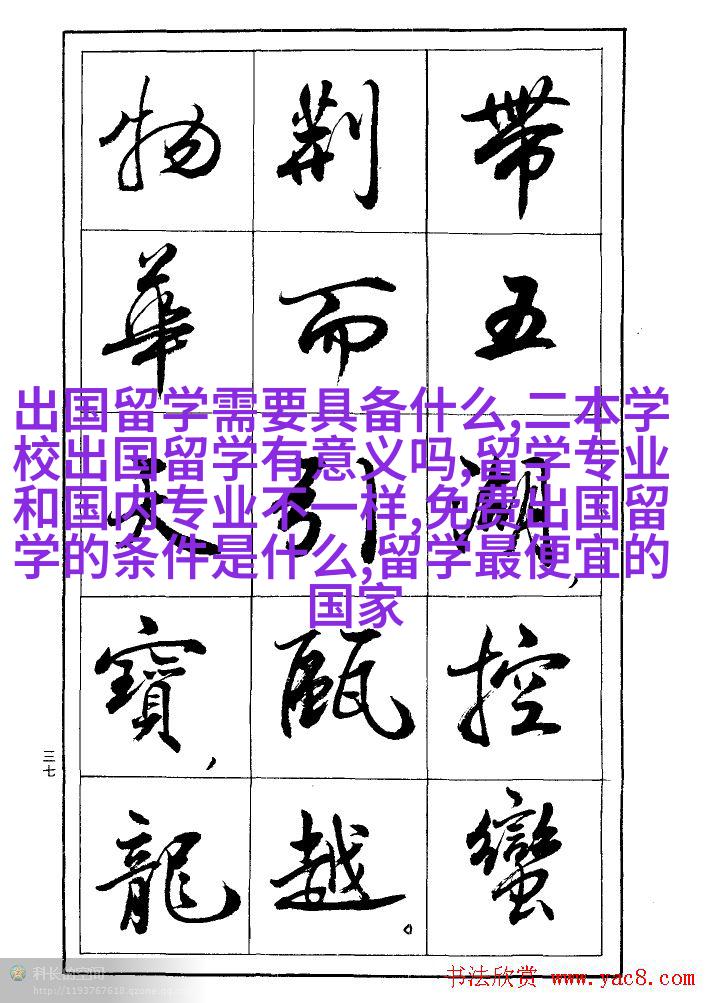 帶五湖,控蠻
荆而引甌越。
物華天寶,龍
出国留学需要具备什么,二本学
校出国留学有意义吗,留学专业
和国内专业不一样,免费出国留
学的条件是什么,留学最便宜的
国家
三七
科长的空间
http://1193767618.qzone.qq
书法欣赏 www.yac8.com